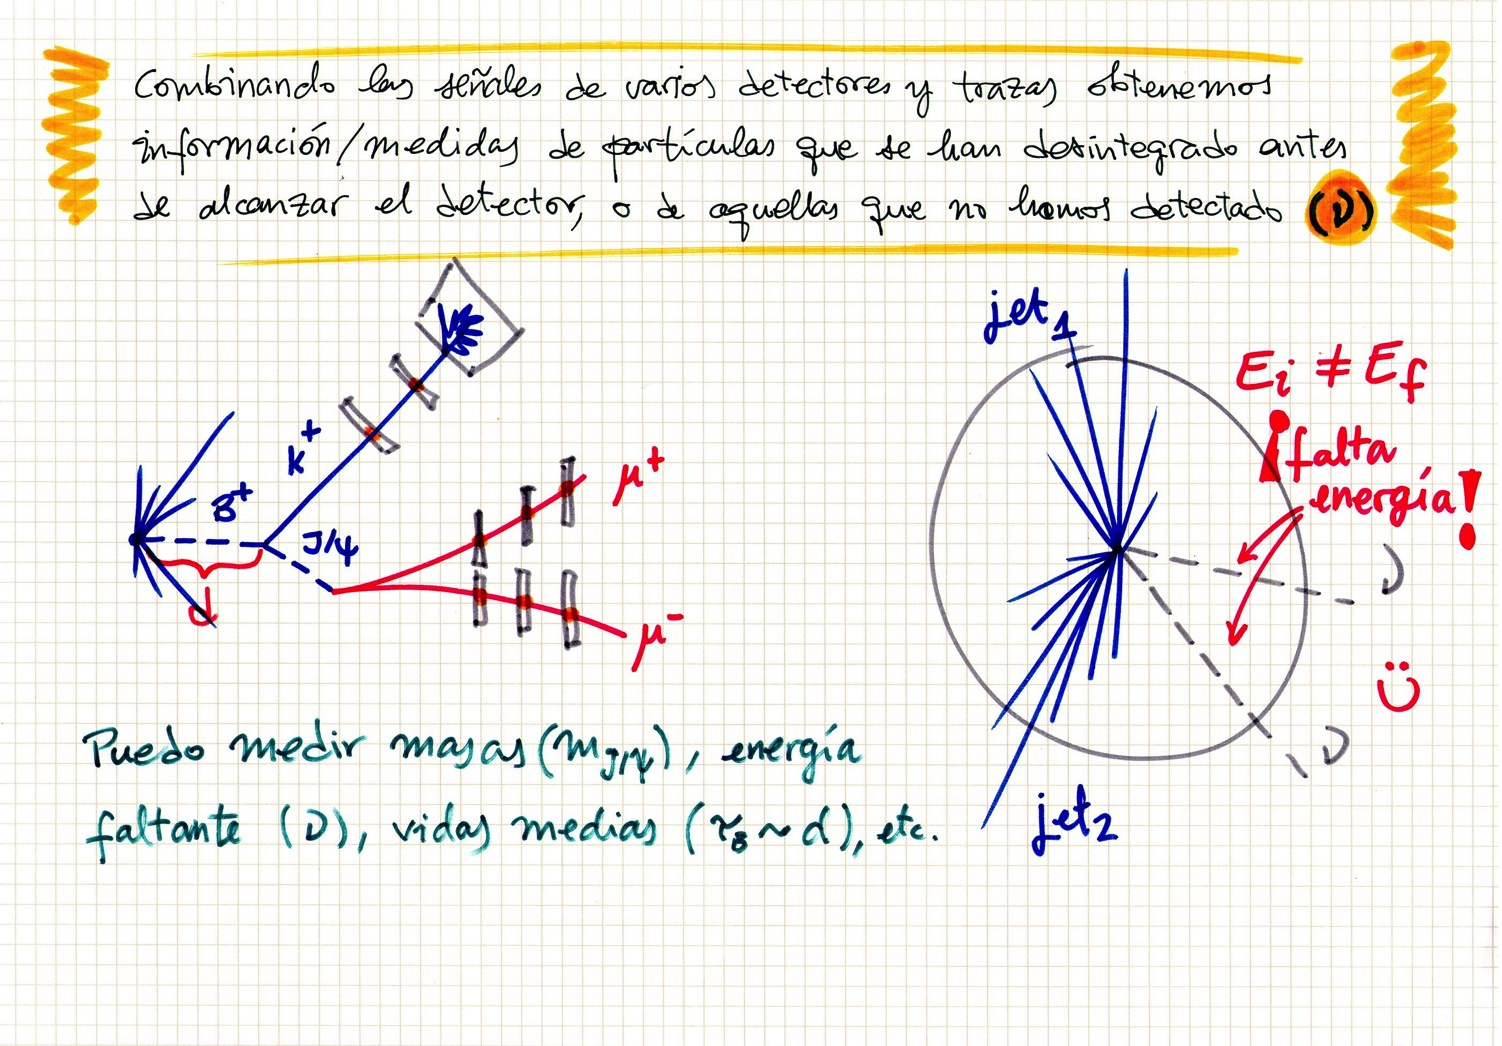 Combinando las señales de varios detectores y trazas obtenemos
información/medidas de partículas que se han desintegrado antes
de alcanzar el detector, o de aquellas que no hemos detectado (ν)
jet₁
Ei ≠ Ef
¡falta
energía!
K⁺
B⁺
J/ψ
μ⁺
d
μ⁻
ν
ν
jet₂
Puedo medir masas (m_J/ψ), energía
faltante (ν), vidas medias (τ_B ~ d), etc.